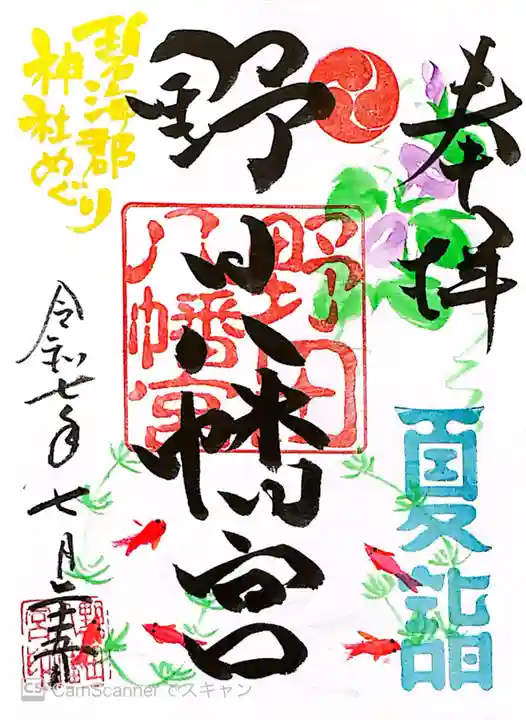 奉拝
夏詣
野田八幡宮
野田
八幡宮
碧海郡
神社めぐり
令和七年七月二十五日
CS CamScanner でスキャン